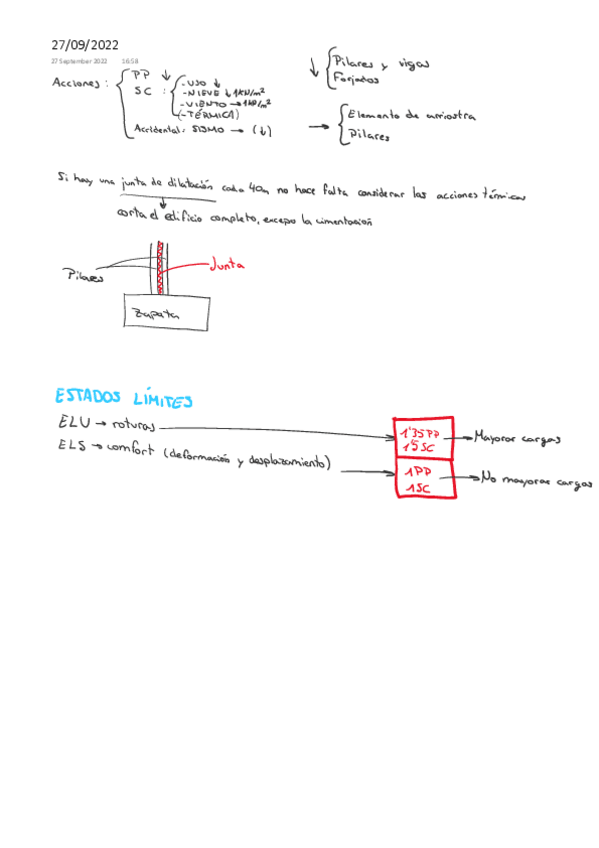 27/09/2022
27 September 2022 16:58
Acciones:
PP ↓
SC :
-USO ↓
-NIEVE ↓ 1KN/m²
-VIENTO → 1KN/m²
(-TÉRMICA)
Accidental: SISMO → (↓)
↓ Pilares y vigas
Forjados
→ Elemento de arriostra
Pilares
Si hay una junta de dilatación cada 40m no hace falta considerar las acciones térmicas
corta el edificio completo, excepo la cimentación
Pilares
Junta
Zapata
ESTADOS LÍMITES
ELU → roturas
1'35 PP
1'5 SC
→ Mayorar cargas
ELS → comfort (deformación y desplazamiento)
1PP
1SC
→ No mayorar cargas